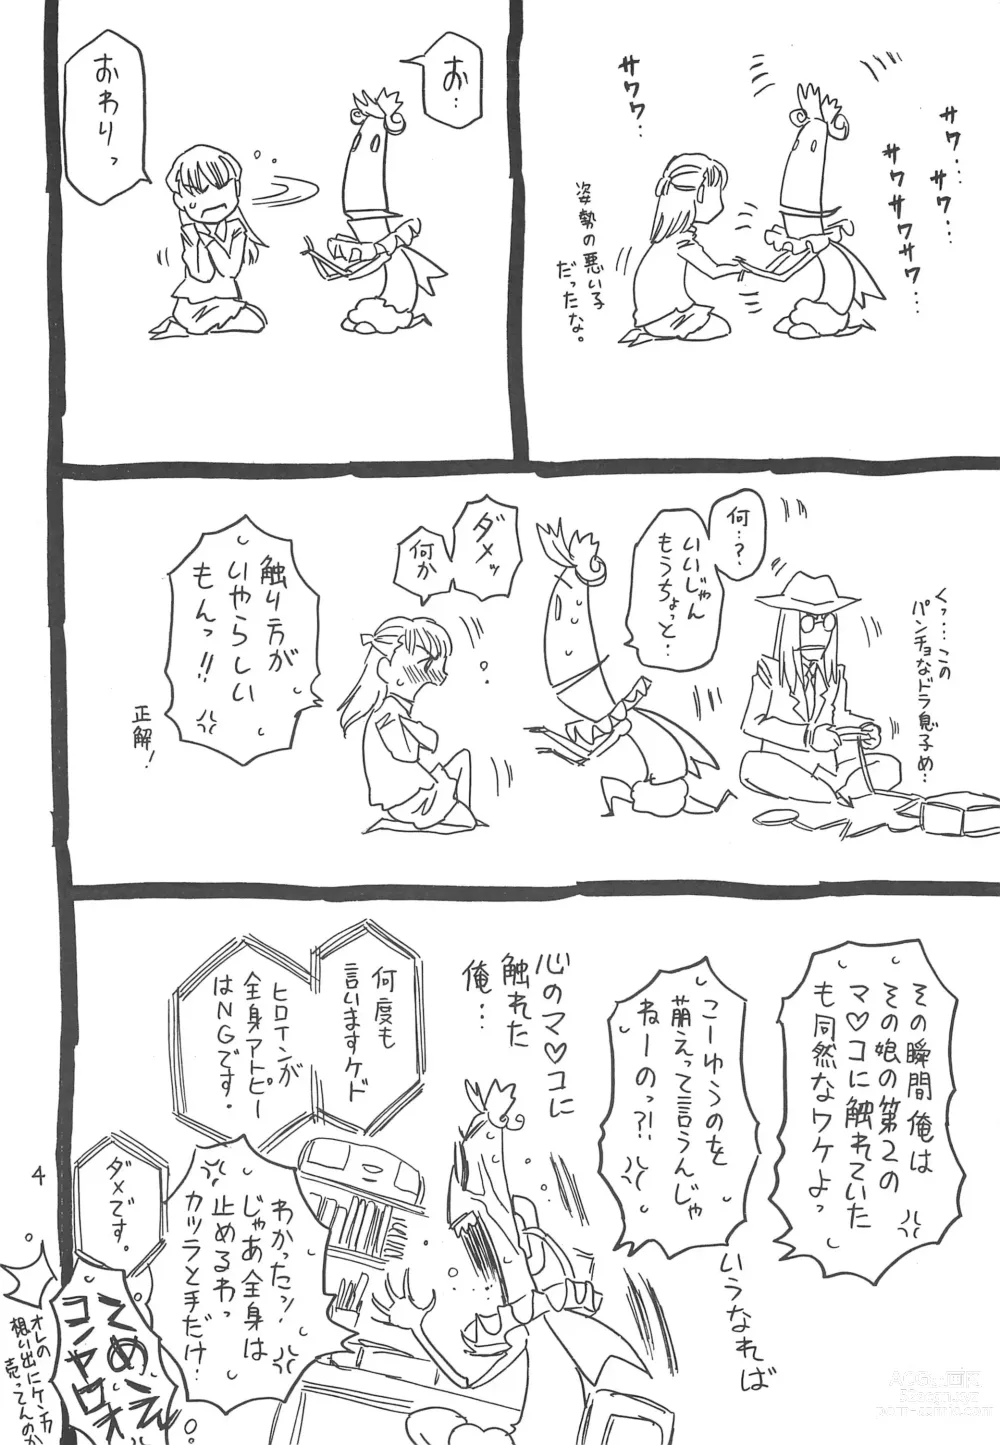 サワ…
サワ…
サワサワサワ…
サワワ…
姿勢の悪い子
だったな。
お…
おわりっ
くっ…この
パンチョなドラ息子め…
何…?
いいじゃん
もうちょっと…
ダメッ
何か
触り方が
いやらしい
もんっ!!
正解!
その瞬間俺は
その娘の第2の
マ♡コに触れていた
も同然なワケよっ
いうなれば
こーゆうのを
萌えって言うんじゃ
ねーのっ?!
心のマ♡コに
触れた
俺…
何度も
言いますケド
ヒロインが
全身アトピー
はNGです。
わかったッ!
じゃあ全身は
止めるわっ
カツラと手だけ!
ダメです。
てめェ
コンヤロオ
オレの
想い出にケンカ
売ってんのか
4